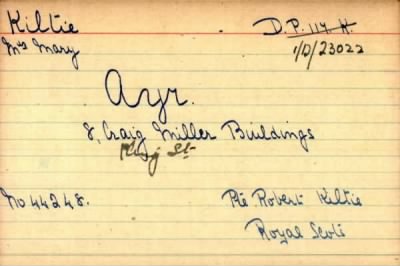 Kiltie D.P. 114 K.
Mrs Mary 1/D/23022
Ayr.
8, Craig Miller Buildings
King St
No 44248. Pte Robert Kiltie
Royal Scots